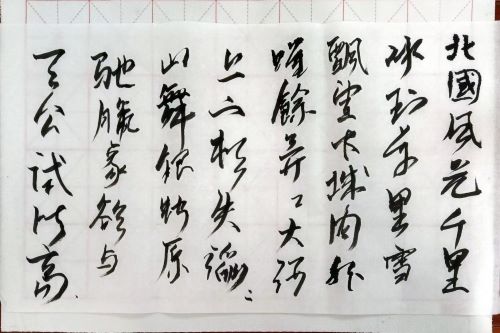 北國風光千里
冰封万里雪
飄望长城内外
惟餘莽々大河
上下頓失滔々
山舞銀蛇原
馳臘象欲与
天公試比高